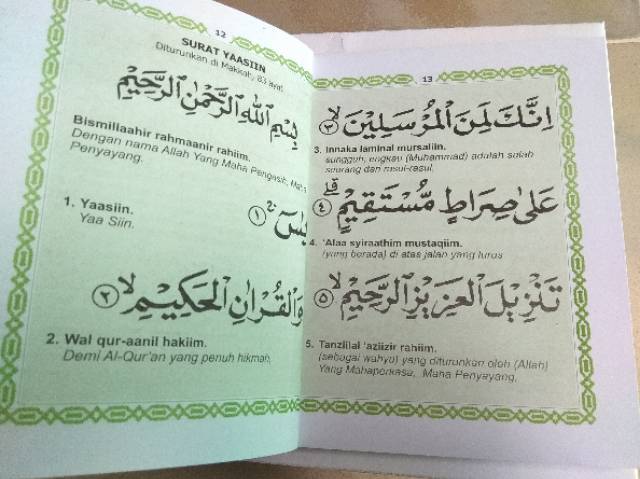 12
SURAT YAASIIN
Diturunkan di Makkah, 83 ayat
بِسْمِ اللهِ الرَّحْمٰنِ الرَّحِيْمِ
Bismillaahir rahmaanir rahiim.
Dengan nama Allah Yang Maha Pengasih, Maha
Penyayang.
يٰسٓ ۚ ﴿١﴾
1. Yaasiin.
Yaa Siin.
وَالْقُرْاٰنِ الْحَكِيْمِ ۙ ﴿٢﴾
2. Wal qur-aanil hakiim.
Demi Al-Qur'an yang penuh hikmah,
13
اِنَّكَ لَمِنَ الْمُرْسَلِيْنَ ۙ ﴿٣﴾
3. Innaka laminal mursaliin.
sungguh, engkau (Muhammad) adalah salah
seorang dari rasul-rasul.
عَلٰى صِرَاطٍ مُّسْتَقِيْمٍ ۗ ﴿٤﴾
4. 'Alaa syiraathim mustaqiim.
(yang berada) di atas jalan yang lurus
تَنْزِيْلَ الْعَزِيْزِ الرَّحِيْمِ ۙ ﴿٥﴾
5. Tanziilal 'aziizir rahiim.
(sebagai wahyu) yang diturunkan oleh (Allah)
Yang Mahaperkasa, Maha Penyayang,